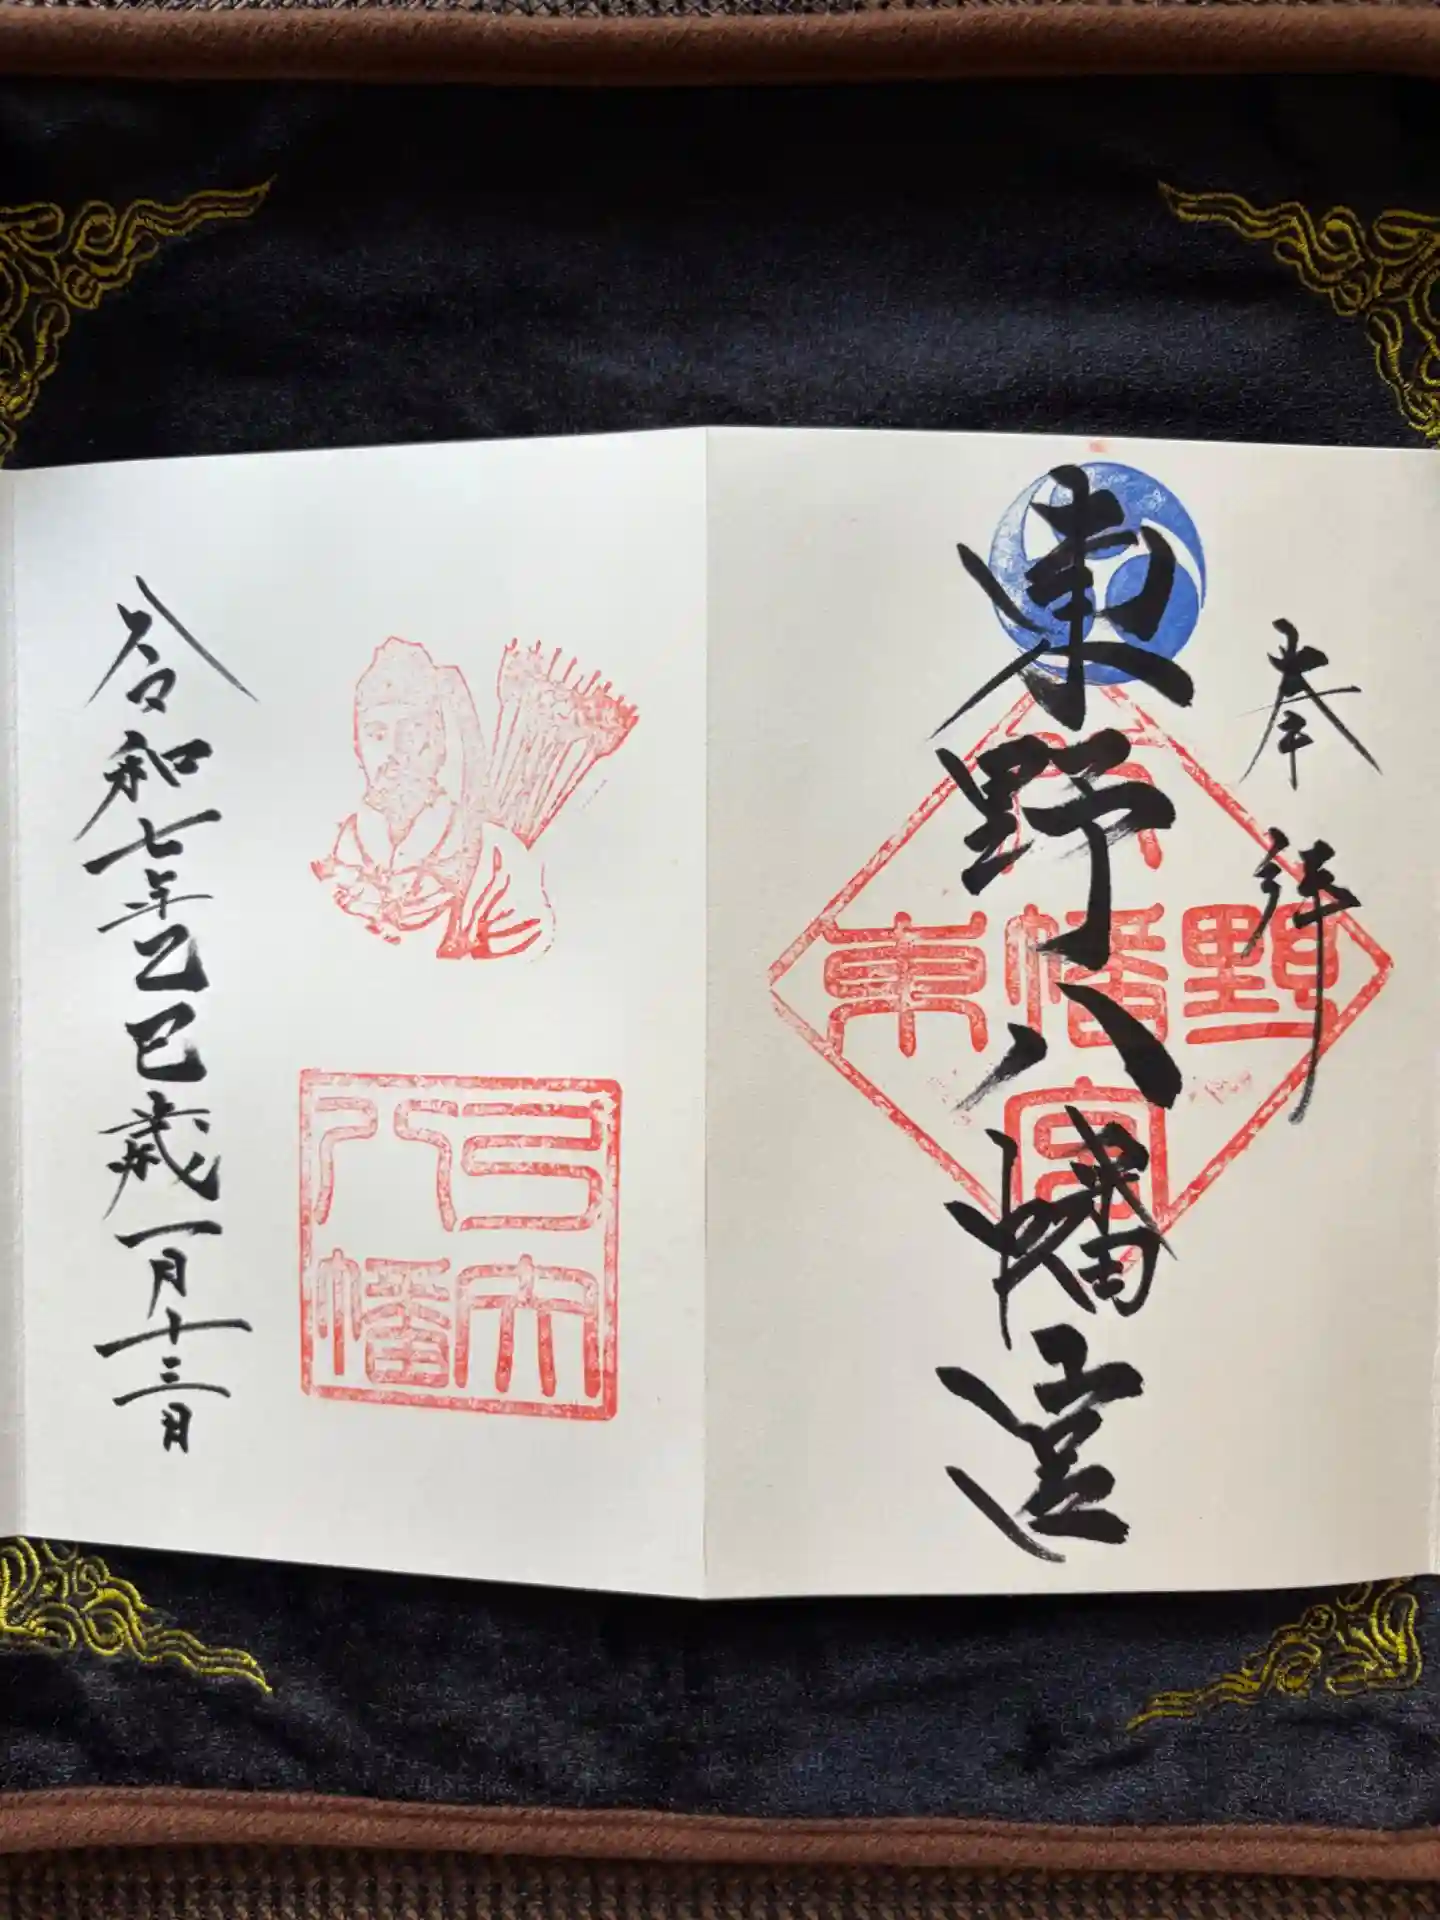 奉拝
東野八幡宮
東野八幡宮
弓矢
八幡
令和七年乙巳歳一月十三日